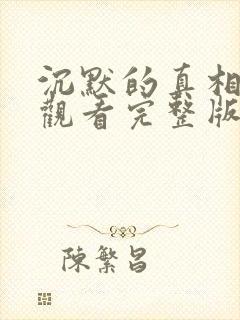 沉默的真相
觀看完整版
陳繁昌